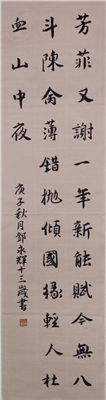 芳菲又謝一年新能賦今無八
斗陳命薄錯拋傾國緣輕人杜
血山中夜
庚子秋月鄧永輝十三歲書